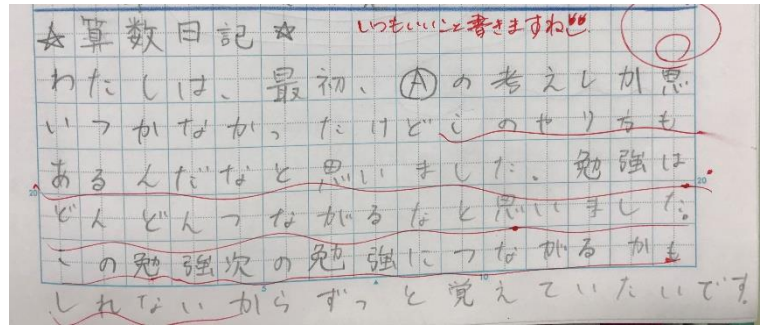 ☆算数日記☆ いつもいいこと書きますね
わたしは、最初、Ⓐの考えしか思
いつかなかったけどこのやり方も
あるんだなと思いました。勉強は
どんどんつながるなと思いました。
この勉強次の勉強につながるかも
しれないからずっと覚えていたいです
20
20
5
10